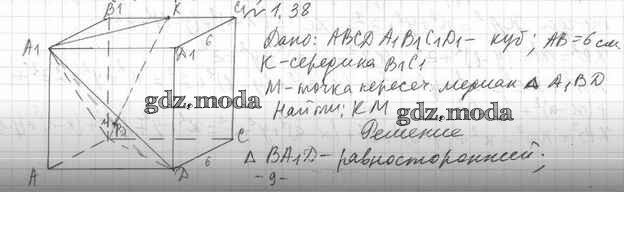 B1 K C1 № 1.38
A1 D1 6
Дано: ABCD A1B1C1D1 - куб; AB = 6 см
K - середина B1C1
M - точка пересеч. медиан Δ A1BD
Найти: KM
gdz.moda gdz.moda
Решение
M B C
Δ BA1D - равносторонней;
A D 6
- 9 -